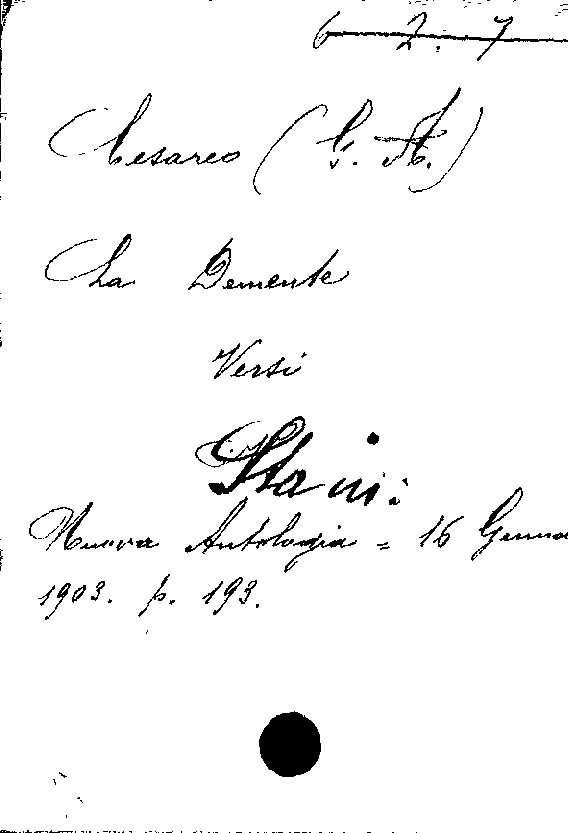 6 2. 7
Cesareo (G. A.)
La Demente
Versi
Sta in:
Nuova Antologia = 16 Genna
1903. p. 193.